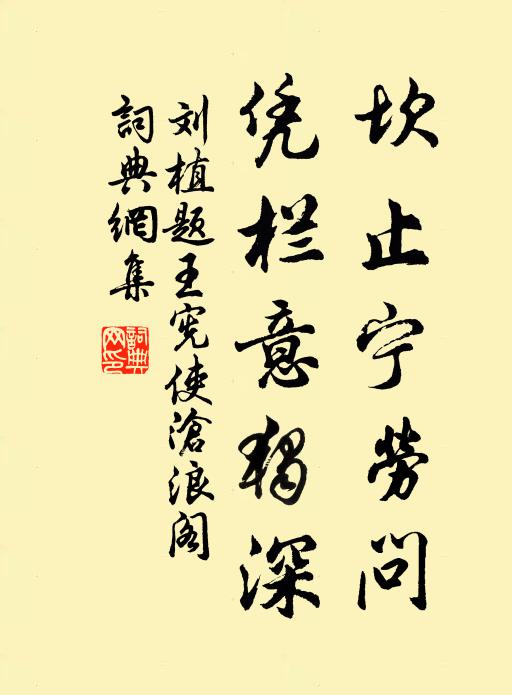 坎止宁勞问
凭栏意独深
刘植题王宪使滄浪阁
詞典網集
詞典網印